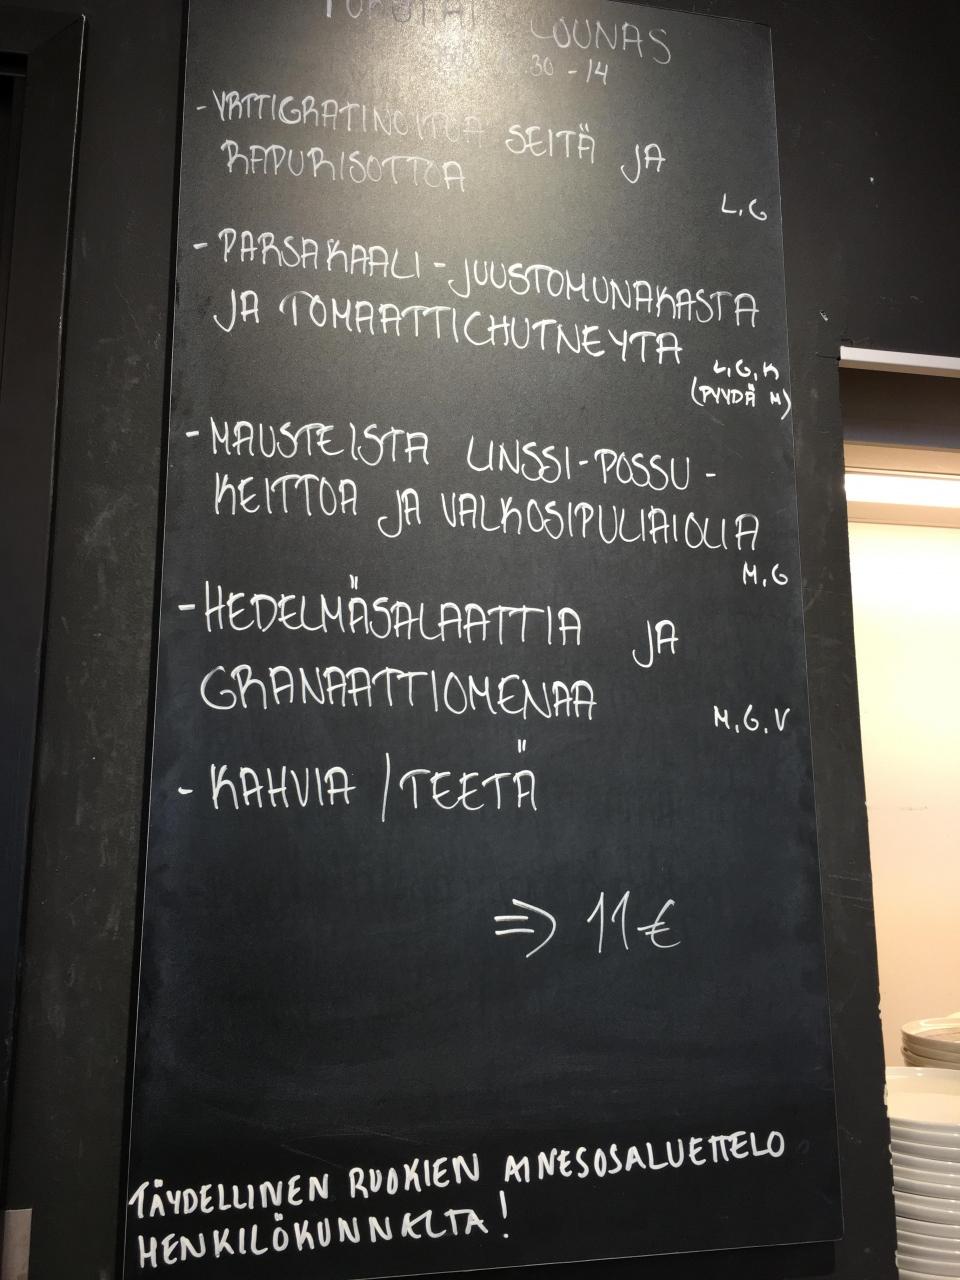 LOUNAS
30 - 14
- YRTTIGRATINOITUA SEITÄ JA
RAPURISOTTOA
L, G
- PARSAKAALI - JUUSTOMUNAKASTA
JA TOMAATTICHUTNEYTA
L, G, K
(PYYDÄ M)
- MAUSTEISTA LINSSI - POSSU -
KEITTOA JA VALKOSIPULIAIOLIA
M, G
- HEDELMÄSALAATTIA JA
GRANAATTIOMENAA
M, G, V
- KAHVIA / TEETÄ
⇒ 11 €
TÄYDELLINEN RUOKIEN AINESOSALUETTELO
HENKILÖKUNNALTA!